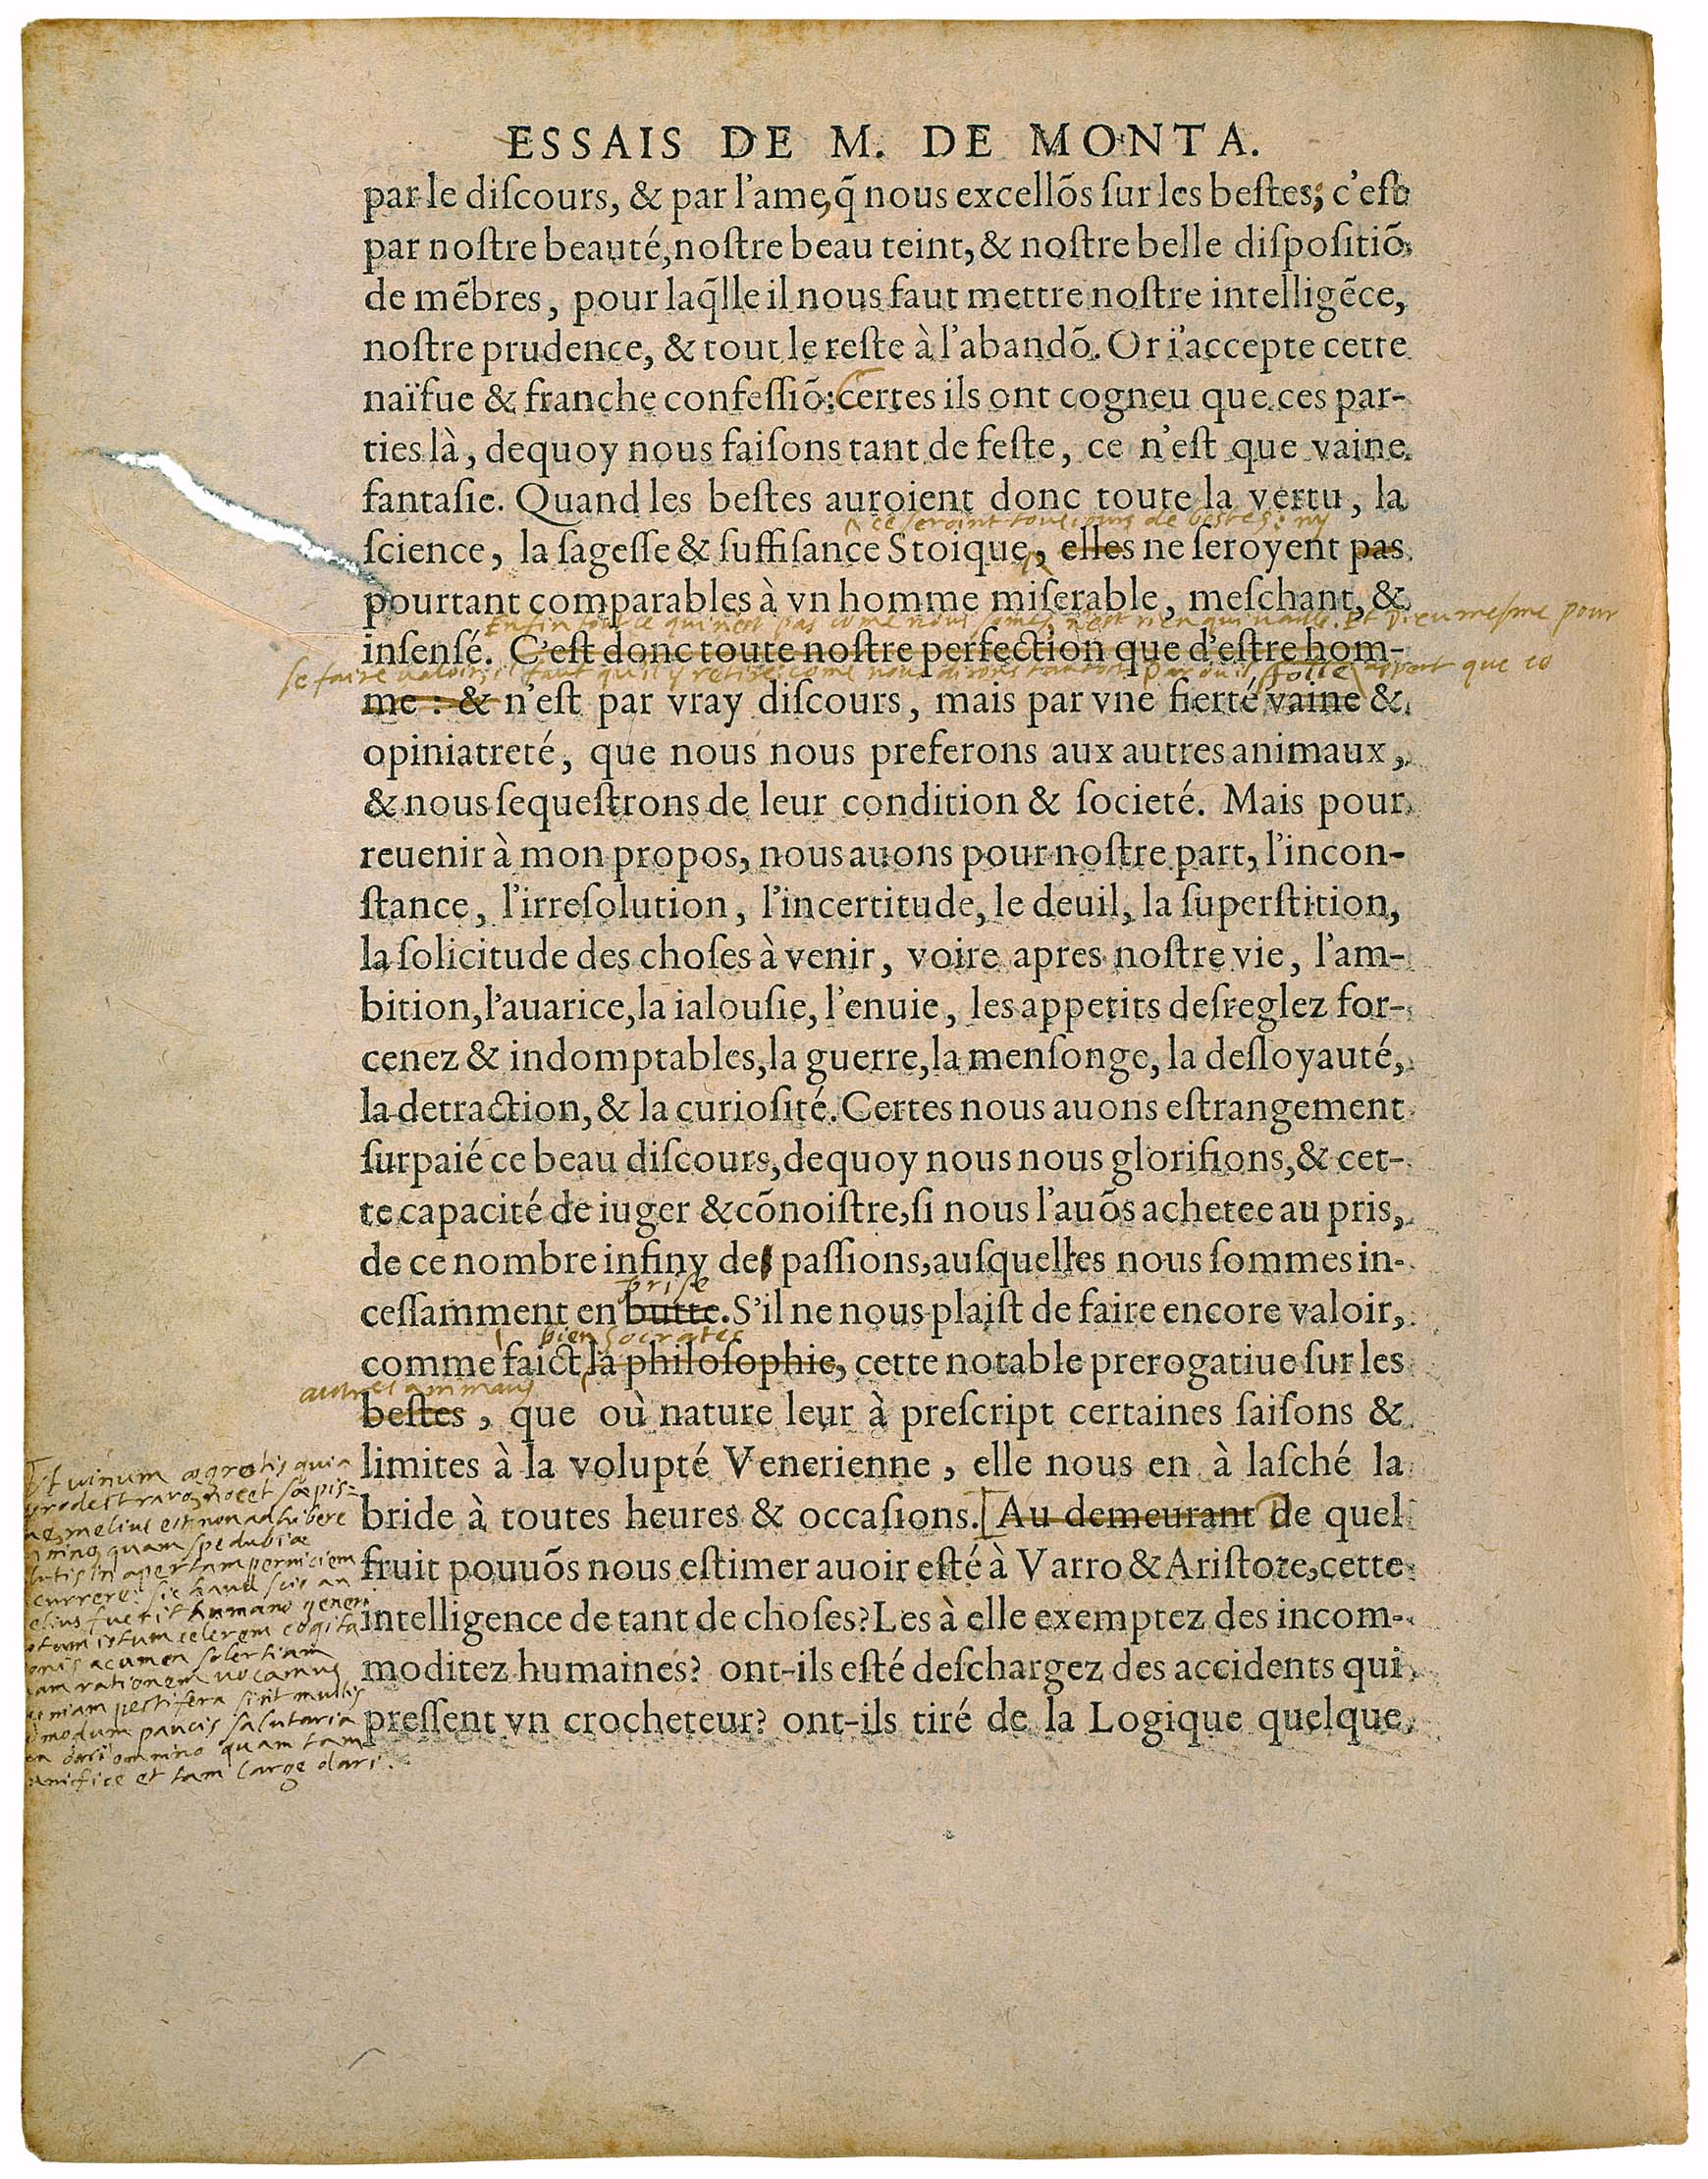 ESSAIS DE M. DE MONTA.
par le diſcours, & par l'ame, q̃ nous excellõs ſur les beſtes; c'eſt
par noſtre beauté, noſtre beau teint, & noſtre belle diſpoſitiõ
de mẽbres, pour laq̃lle il nous faut mettre noſtre intelligẽce,
noſtre prudence, & tout le reſte à l'abandõ. Or i'accepte cette
naïfue & franche confeſſiõ: Certes ils ont cogneu que ces par-
ties là, dequoy nous faiſons tant de feſte, ce n'eſt que vaine
fantaſie. Quand les beſtes auroient donc toute la vertu, la
ce seroint tousiours de bestes: ny
ſcience, la ſageſſe & ſuffiſance Stoique, elles ne ſeroyent pas
pourtant comparables à vn homme miſerable, meſchant, &
Enfin tout ce qui n'est pas come nous somes n'est rien qui vaille. Et Dieu mesme pour
inſenſé. C'eſt donc toute noſtre perfection que d'eſtre hom-
se faire valoir il faut qu'il y retire: come nous dirons tantost. Par où il appert que ce
folle
me: & n'eſt par vray diſcours, mais par vne fierté vaine &
opiniatreté, que nous nous preferons aux autres animaux,
& nous ſequeſtrons de leur condition & ſocieté. Mais pour
reuenir à mon propos, nous auons pour noſtre part, l'incon-
ſtance, l'irreſolution, l'incertitude, le deuil, la ſuperſtition,
la ſolicitude des choſes à venir, voire apres noſtre vie, l'am-
bition, l'auarice, la ialouſie, l'enuie, les appetits deſreglez for-
cenez & indomptables, la guerre, la menſonge, la deſloyauté,
la detraction, & la curioſité. Certes nous auons eſtrangement
ſurpaié ce beau diſcours, dequoy nous nous glorifions, & cet-
te capacité de iuger & cõnoiſtre, ſi nous l'auõs achetee au pris,
de ce nombre infiny des paſſions, auſquelles nous ſommes in-
prise
ceſſamment en butte. S'il ne nous plaiſt de faire encore valoir,
bien Socrates
comme faict la philoſophie, cette notable prerogatiue ſur les
autres animaus
beſtes, que où nature leur à preſcript certaines ſaiſons &
limites à la volupté Venerienne, elle nous en à laſché la
bride à toutes heures & occaſions. [Au demeurant De quel
fruit pouuõs nous eſtimer auoir eſté à Varro & Ariſtote, cette
intelligence de tant de choſes? Les à elle exemptez des incom-
moditez humaines? ont-ils eſté deſchargez des accidents qui
preſſent vn crocheteur? ont-ils tiré de la Logique quelque
Vt uinum ægrotis quia
prodest raro, nocet sæpis-
me, melius est non adhibere
omnino, quam spe dubiæ
salutis in apertam perniciem
incurrere: sic haud scio an
melius fuerit humano generi
motum istum celerem cogita
tionis acumen solertiam
quam rationem uocamus
quoniam pestifera sint multis
admodum paucis salutaria
non dari omnino quam tam
munifice et tam large dari.